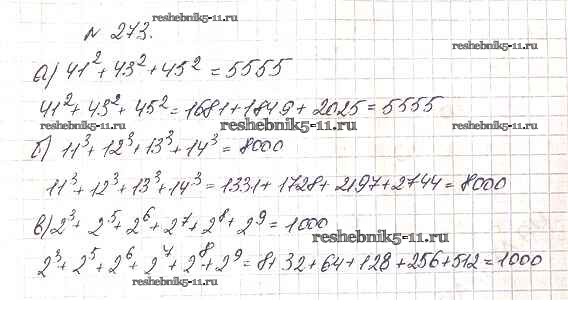 reshebnik5-11.ru
№ 273.
reshebnik5-11.ru
а) 41² + 43² + 45² = 5555
41² + 43² + 45² = 1681 + 1849 + 2025 = 5555
reshebnik5-11.ru reshebnik5-11.ru reshebnik5-11.ru
б) 11³ + 12³ + 13³ + 14³ = 8000
11³ + 12³ + 13³ + 14³ = 1331 + 1728 + 2197 + 2744 = 8000
в) 2³ + 2⁵ + 2⁶ + 2⁷ + 2⁸ + 2⁹ = 1000
reshebnik5-11.ru
2³ + 2⁵ + 2⁶ + 2⁷ + 2⁸ + 2⁹ = 8 + 32 + 64 + 128 + 256 + 512 = 1000
reshebnik5-11.ru